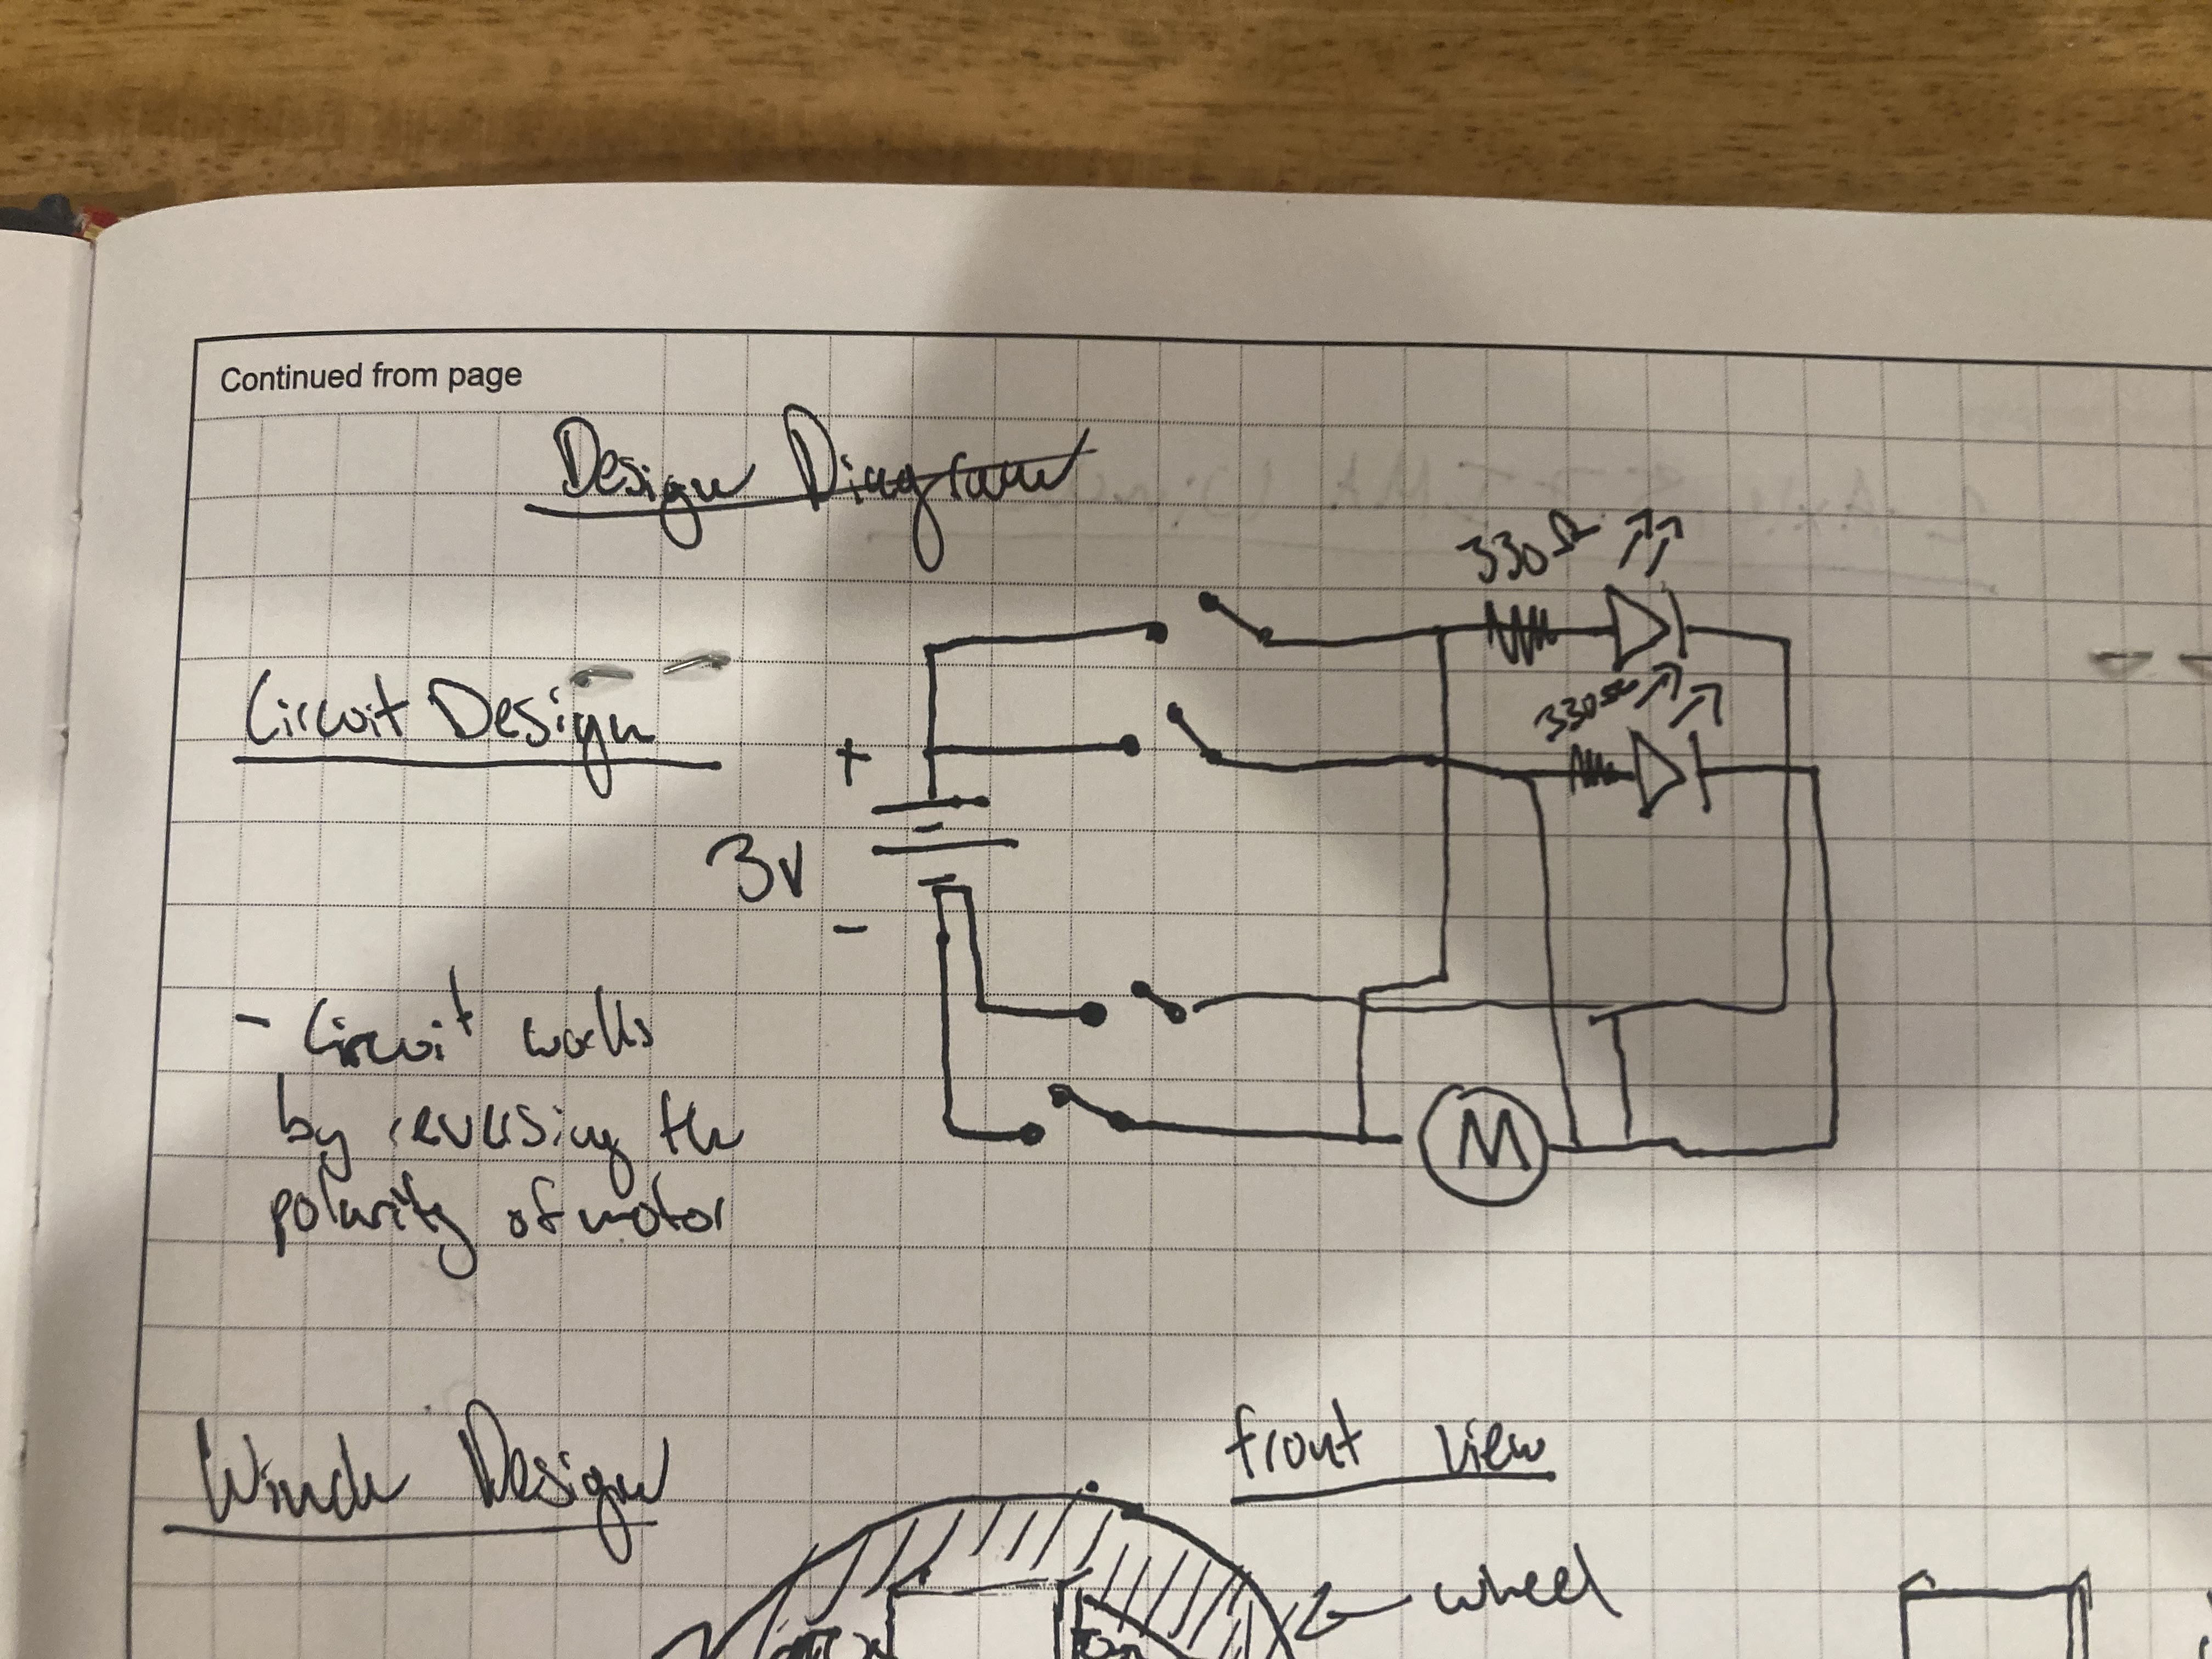 Continued from page
Design Diagram
330Ω
Circuit Design
330Ω
+
3V
-
- Circuit works
by reversing the
polarity of motor
M
Winch Design
front view
wheel